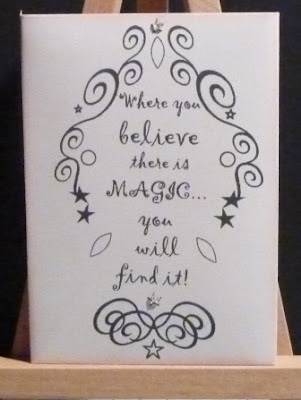 "Where you
believe
there is
MAGIC...
you
will
find it!